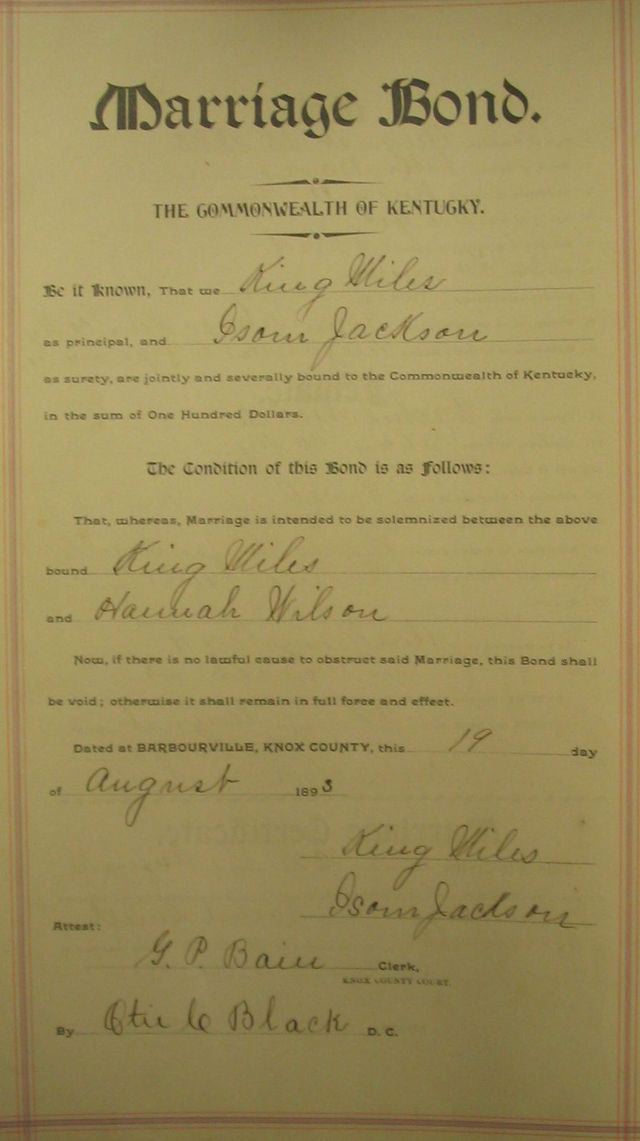 Marriage Bond.
THE COMMONWEALTH OF KENTUCKY.
Be it Known, That we King Miles
as principal, and Isom Jackson
as surety, are jointly and severally bound to the Commonwealth of Kentucky,
in the sum of One Hundred Dollars.
The Condition of this Bond is as Follows:
That, whereas, Marriage is intended to be solemnized between the above
bound King Miles
and Hannah Wilson
Now, if there is no lawful cause to obstruct said Marriage, this Bond shall
be void; otherwise it shall remain in full force and effect.
Dated at BARBOURVILLE, KNOX COUNTY, this 19 day
of August 1893
King Miles
Isom Jackson
Attest:
G. P. Bain Clerk,
KNOX COUNTY COURT.
By C Black D. C.